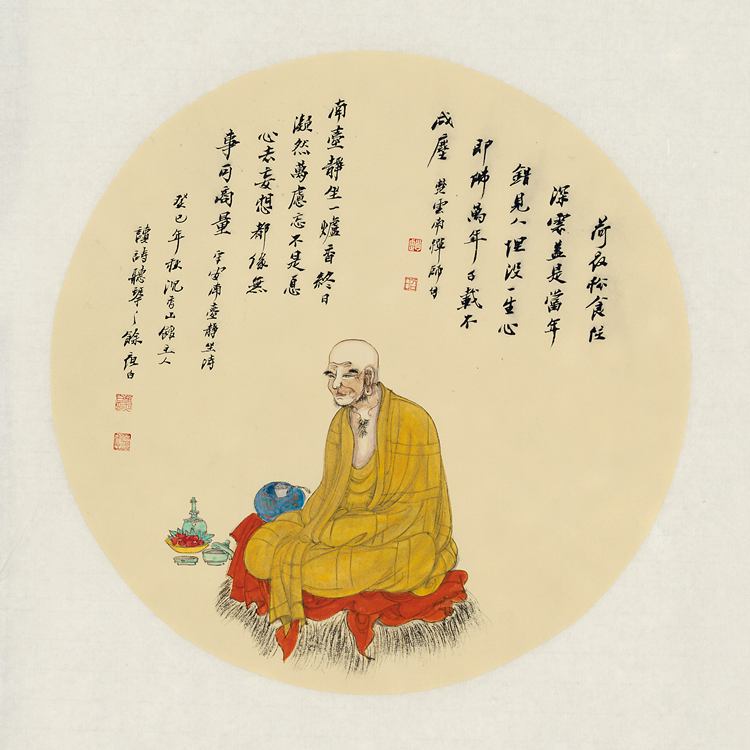 荷衣松食住
深雲蓋是當年
錯見人埋没一生心
即佛萬年千載不
成塵 楚雲南禪師句
南臺靜坐一爐香終日
凝然萬慮忘不是息
心去妄想都緣無
事可商量 守安南臺靜坐诗
癸巳年秋沉香山館主人
讀詩聽琴之餘